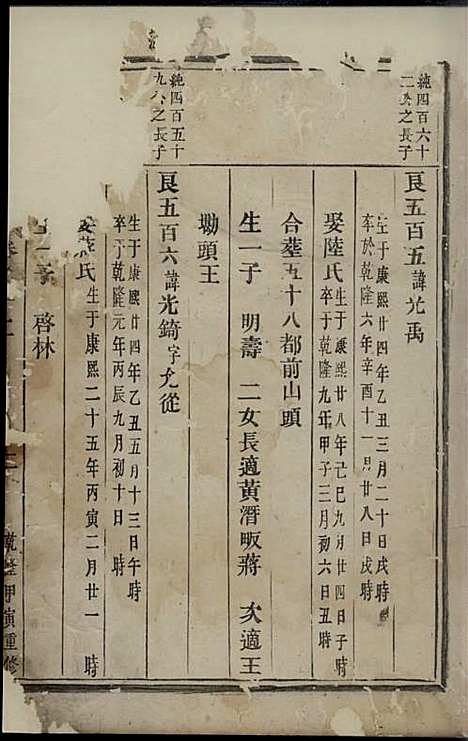 純四百六十
二公之長子
良五百五諱光禹
生于康熙廿四年乙丑三月二十日戌時
卒於乾隆六年辛酉十一月廿八日戌時
娶陸氏生于康熙廿八年己巳九月廿四日子時
卒于乾隆九年甲子三月初六日丑時
合塟五十八都前山頭
生一子 明壽 二女長適黃潛畈蔣 次適王
坳頭王
純四百五十
九公之長子
良五百六諱光錡字允從
生于康熙廿四年乙丑五月十三日午時
卒于乾隆元年丙辰九月初十日 時
氏生于康熙二十五年丙寅二月廿一 時
啓林
乾隆甲寅重修